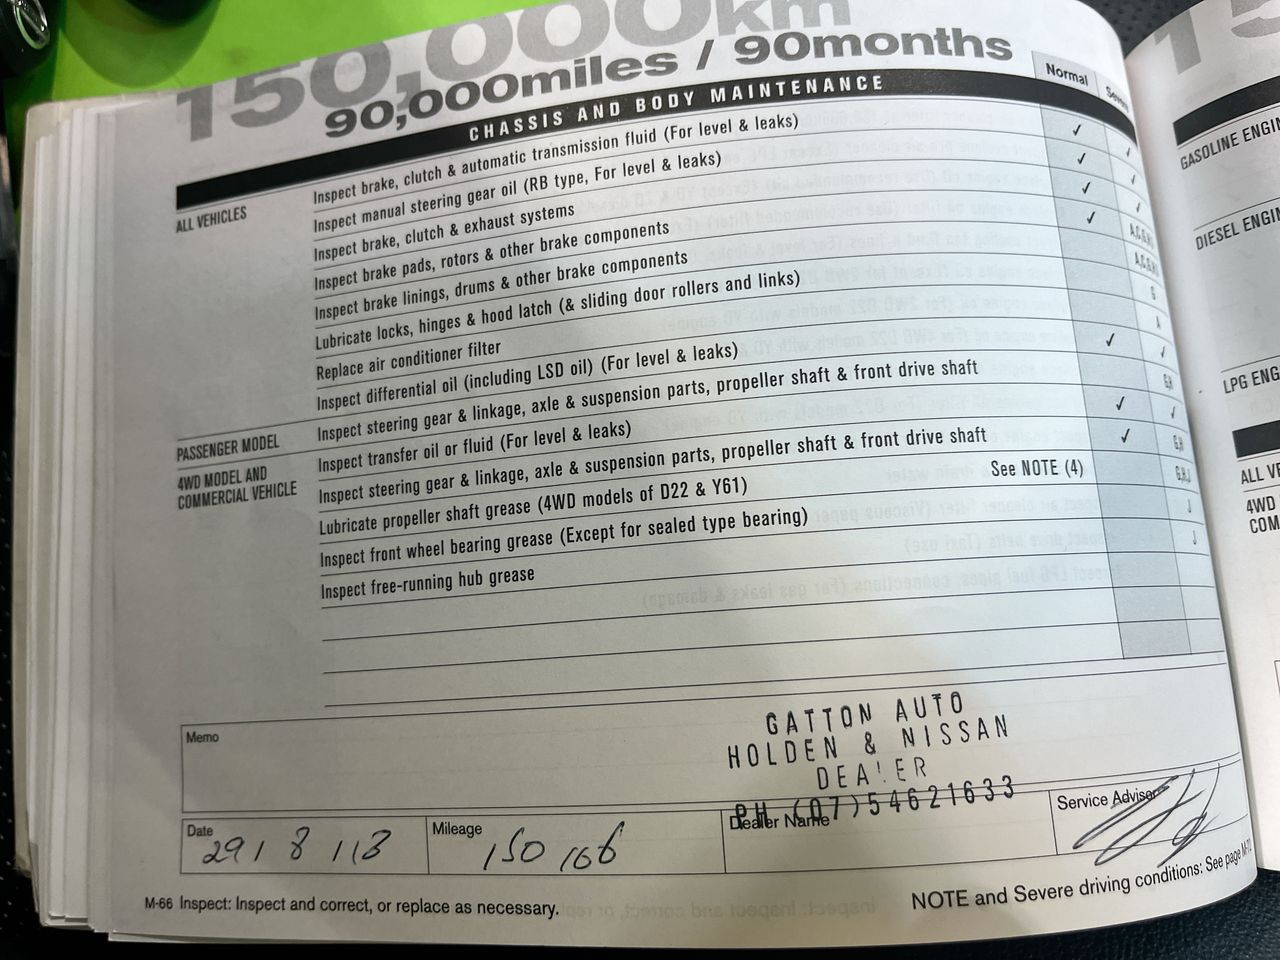 150,000km
90,000miles / 90months
CHASSIS AND BODY MAINTENANCE
Normal
Severe
ALL VEHICLES
Inspect brake, clutch & automatic transmission fluid (For level & leaks) ✓ ✓
Inspect manual steering gear oil (RB type, For level & leaks) ✓ ✓
Inspect brake, clutch & exhaust systems ✓ ✓
Inspect brake pads, rotors & other brake components ✓
Inspect brake linings, drums & other brake components
Lubricate locks, hinges & hood latch (& sliding door rollers and links) G
Replace air conditioner filter A
Inspect differential oil (including LSD oil) (For level & leaks) ✓ ✓
PASSENGER MODEL
Inspect steering gear & linkage, axle & suspension parts, propeller shaft & front drive shaft G,H
4WD MODEL AND
COMMERCIAL VEHICLE
Inspect transfer oil or fluid (For level & leaks) ✓ ✓
Inspect steering gear & linkage, axle & suspension parts, propeller shaft & front drive shaft ✓ G,H
Lubricate propeller shaft grease (4WD models of D22 & Y61) See NOTE (4) G,H,J
Inspect front wheel bearing grease (Except for sealed type bearing) J
Inspect free-running hub grease J
Memo
GATTON AUTO
HOLDEN & NISSAN
DEALER
PH (07)54621633
Date
29 / 8 / 13
Mileage
150 166
Dealer Name
Service Advisor
M-66 Inspect: Inspect and correct, or replace as necessary.
NOTE and Severe driving conditions: See page
GASOLINE ENGIN
DIESEL ENGIN
LPG ENG
ALL VE
4WD
COM